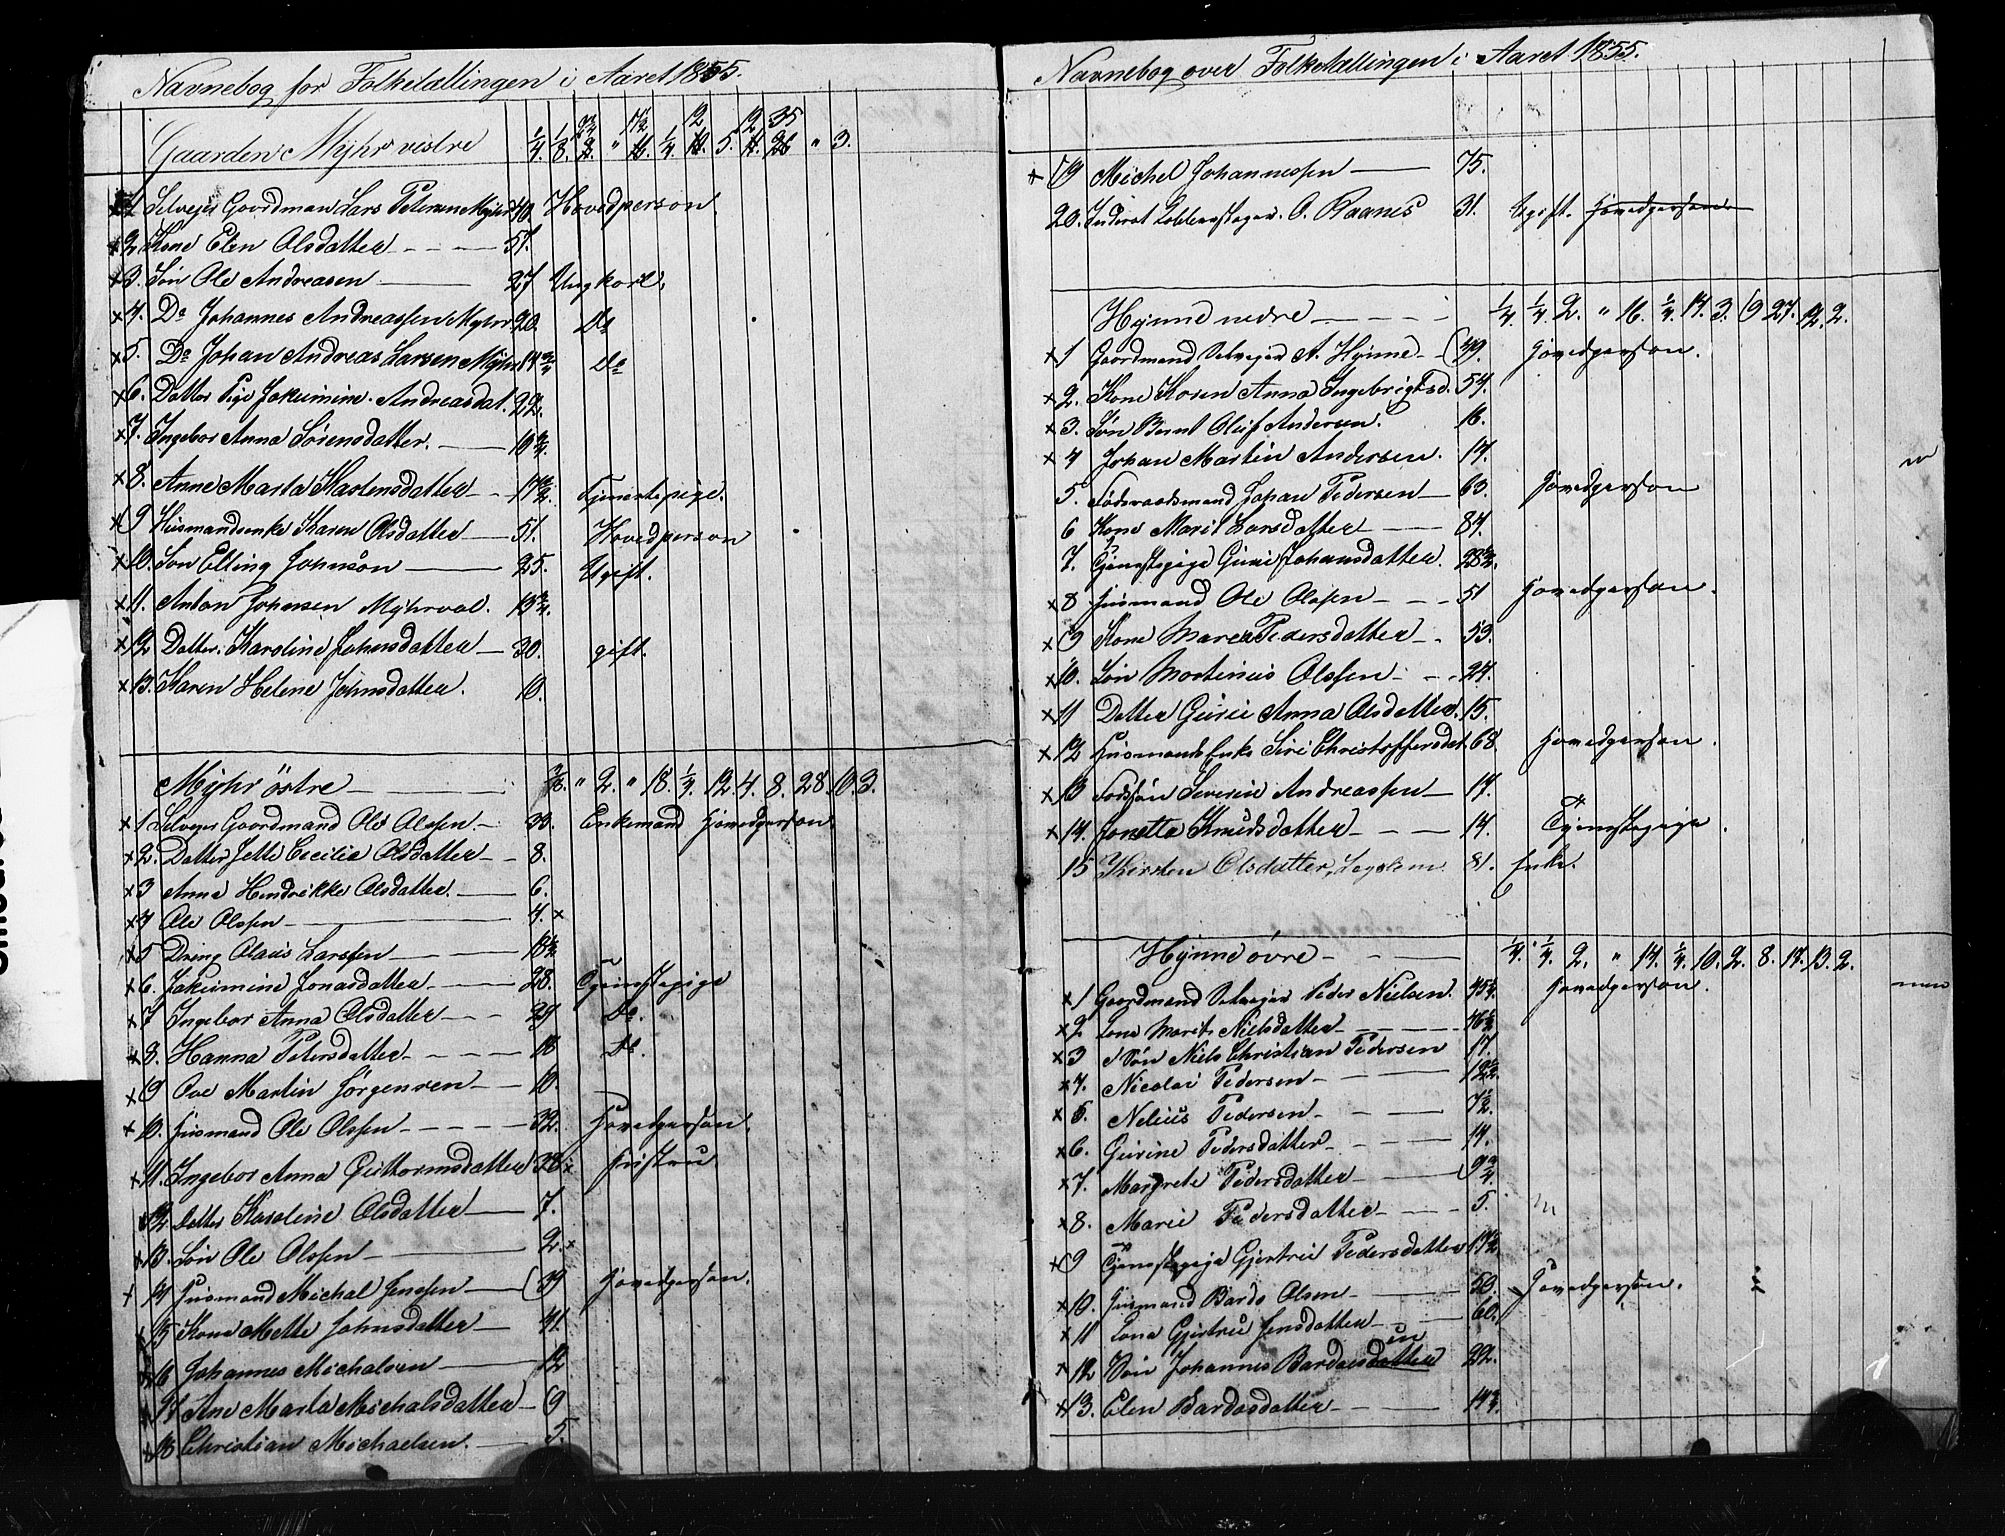 Navnebog for Folketællingen i Aaret 1855.
Gaarden Myhr vestre 1/4. 1/8. " 1/4 5. " 3.
1 Selveier Goordman Lars Petersen Myhr 40. Hovedperson.
2 Kone Elen Olsdatter 51.
3. Søn Ole Andreasen 27 Ungkarl.
4. Do Johannes Andreassen Myhr 20. Do
5. Do Johan Andreas Larsen Myhr 14 3/4 Do
6. Datter Pige Jakumine Andreasdat. 22.
7. Ingebor Anna Sørensdatter. 10 3/4.
8. Anne Marta Martensdatter 17 1/2. Tjenestepige.
9 Husmandsenke Karen Olsdatter 51. Hovedperson
10. Søn Elling Johnsøn 25. Ugift.
11. Anton Johnsen Myhrvol. 13 3/4.
12 Datter. Karoline Johnsdatter 30. gift.
13. Karen Helene Johnsdatter. 10.
Myhr östre " 2. " 18. 1/4. 12. 4. 8. 28. 10. 3.
1 Selveier Goordmand Ole Olssen. 33. Enkemand Hovedperson.
2. Datter Jette Cecilia Olsdatter 8.
3 Anna Hendrikke Olsdatter. 6.
4 Ole Olssen 4. x
5 Dreng Olaus Larssen 18 1/2
6. Jakumine Jonasdatter 28. Tjenestepige
7 Ingebor Anna Olsdatter 29 Do.
8. Hanna Petersdatter 18 Do.
9 Ove Martin Jørgensen 10.
10. Husmand Ole Olssen 32. Hovedperson.
11. Ingebor Anna Guttormsdatter 38 x Hustru
12 Datter Karoline Olsdatter 7.
13. Søn Ole Olssen 2. x
14 Husmand Michal Jenssen 39 Hovedperson.
15 Kone Mette Johnsdatter 41.
16 Johannes Michalsen 12
17 Ane Marta Michalsdatter 9
18 Christian Michaelsen. 5.
Navnebog over Folketællingen i Aaret 1855.
19 Michel Johannessen 75.
20. Inderst O. Raanes 31. Ugift. Hovedperson
Hynne nedre 1/4. 1/4. 2. " 16. 1/4. 14. 3. 9 27. 12. 2.
1 Goordmand Selveier A. Hynne 49. Hovedperson.
2. Kone Karen Anna Ingebrigtsd. 54.
3. Søn Bernt Oluf Andersen. 16.
4 Johan Martin Andersen. 14.
5. Føderaadsmand Johan Pedersen 63. Hovedperson
6 Kone Marit Larsdatter 84.
7. Tjenestepige Guri Johansdatter. 28 1/2.
8 Husmand Ole Olssen 51 Hovedperson.
9 Kone Maren Pedersdatter 53.
10. Søn Mortinus Olssen 24.
11 Datter Gurie Anna Olsdatter. 15.
12 Husmands Enke Siri Christoffersdat. 68 Hovedperson.
13 Søn Severin Andreassen 14.
14. Jonetta Knudsdatter 14. Tjenestepige.
15 Kirsten Olsdatter, 81. Enke.
Hynne øvre 1/4. 1/4. 2. " 14. 1/4. 10. 2. 8. 17. 13. 2.
1 Goordmand Selveier Peder Nielsen. 45 3/4. Hovedperson.
2 Kone Marit Nielsdatter 46 1/2
3 Søn Niels Christian Pedersen 17.
4. Nicolai Pedersen 12 1/2.
5. Nelius Pedersen 7 1/2.
6. Gurine Pedersdatter 14.
7. Margrete Pedersdatter 9 3/4
8. Marie Pedersdatter 5.
9 Tjenestepige Gjertrue Pedersdatter 17 1/2
10. Husmand Bardo Olsen 50. Hovedperson.
11 Kona Gjertrue Jensdatter 60.
12 Søn Johannes Bardosdatter en 22.
13. Elen Bardosdatter 14 3/4.